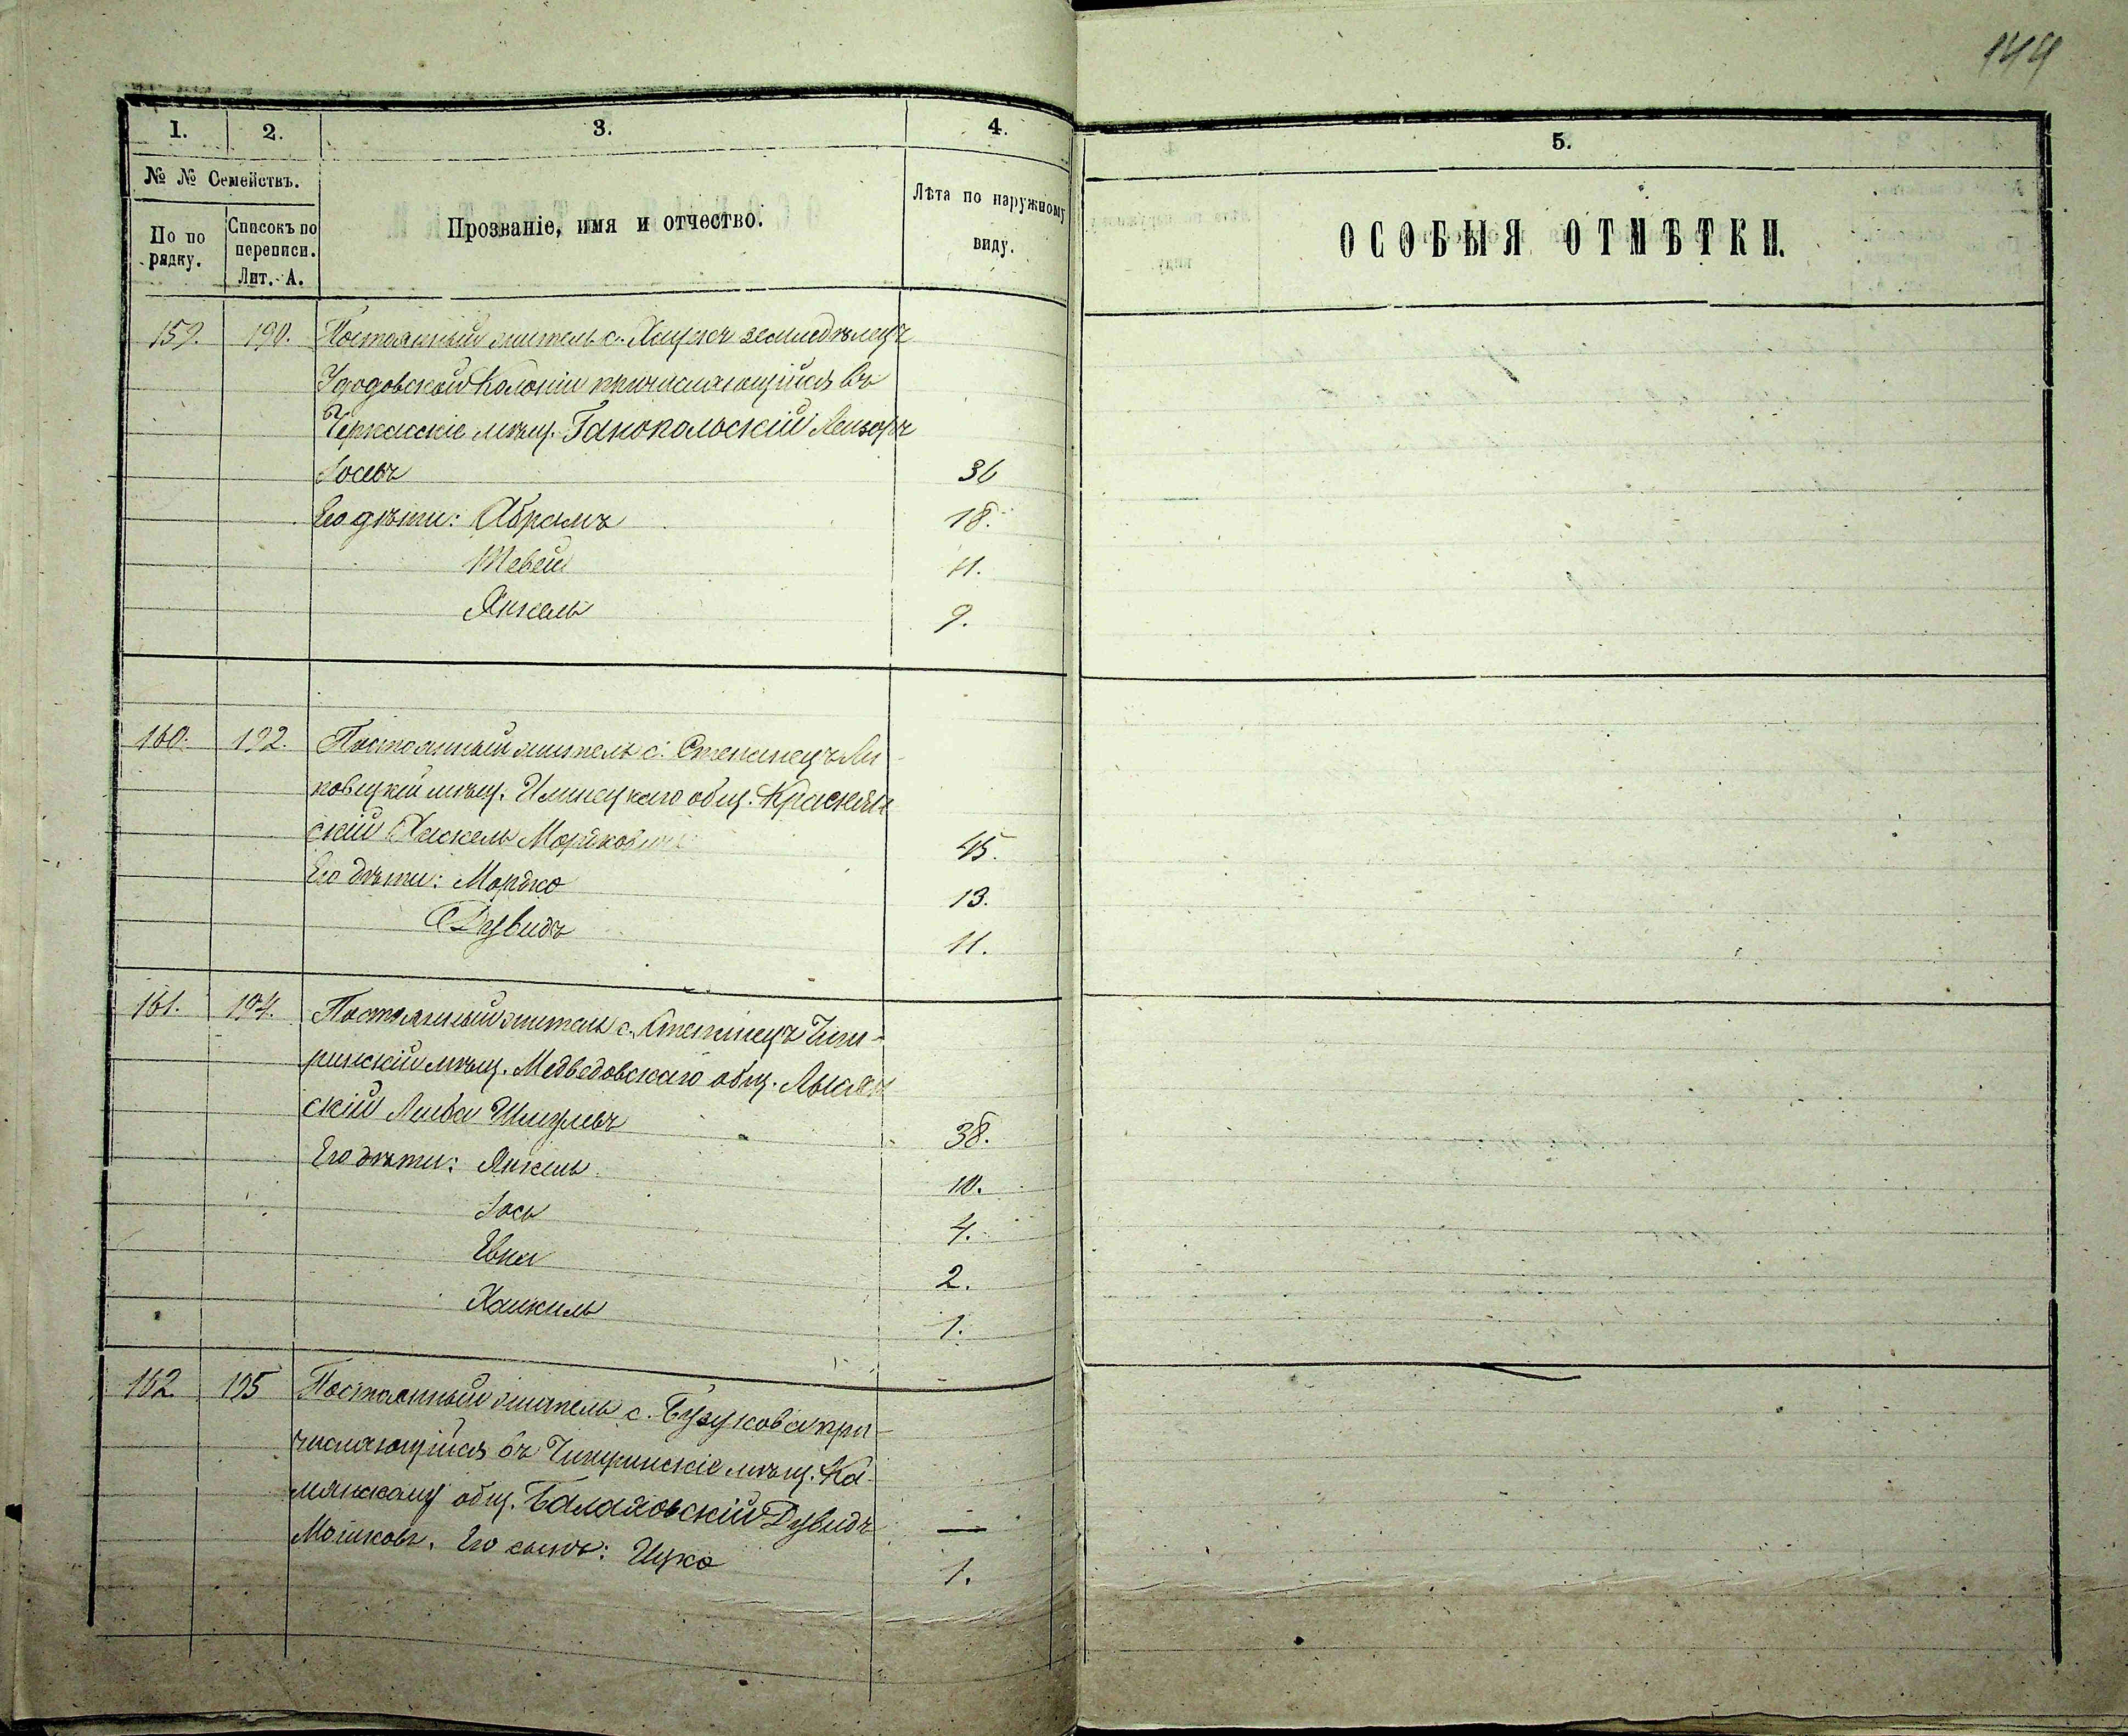 144
1. 2. 3. 4.
№ № Семействъ.
По порядку. Списокъ по переписи. Лит. А. Прозваніе, имя и отчество. Лѣта по наружному виду.
5.
ОСОБЫЯ ОТМѢТКИ.
159. 190. Постоянный житель с. земледѣлецъ
колоніи причисляющійся въ
Черкасскіе мѣщ. Ганопольскій Лейзоръ
Іосевъ 36
Его дѣти: Абрамъ 18.
Тевей 11.
Янкель 9.
160. 192. Постоянный житель с. Степанецъ Ли-
повецкій мѣщ. Илинецкаго общ. Краснян
скій Хаскель Мордковъ 45.
Его дѣти: Мордко 13.
Дувидъ 11.
161. 194. Постоянный житель с. Степанецъ Чиги-
ринскій мѣщ. Медведовскаго общ. Лысян
скій Лейба Шмулевъ 38.
Его дѣти: Янкель 10.
Іось 4.
2.
Хаскиль 1.
162. 195 Постоянный житель с. Бузукова при-
числяющійся въ Чигиринскіе мѣщ. Ка-
мянскому общ. Балаховскій Дувидъ —
Мошковъ. Его сынъ: Ицко 1.